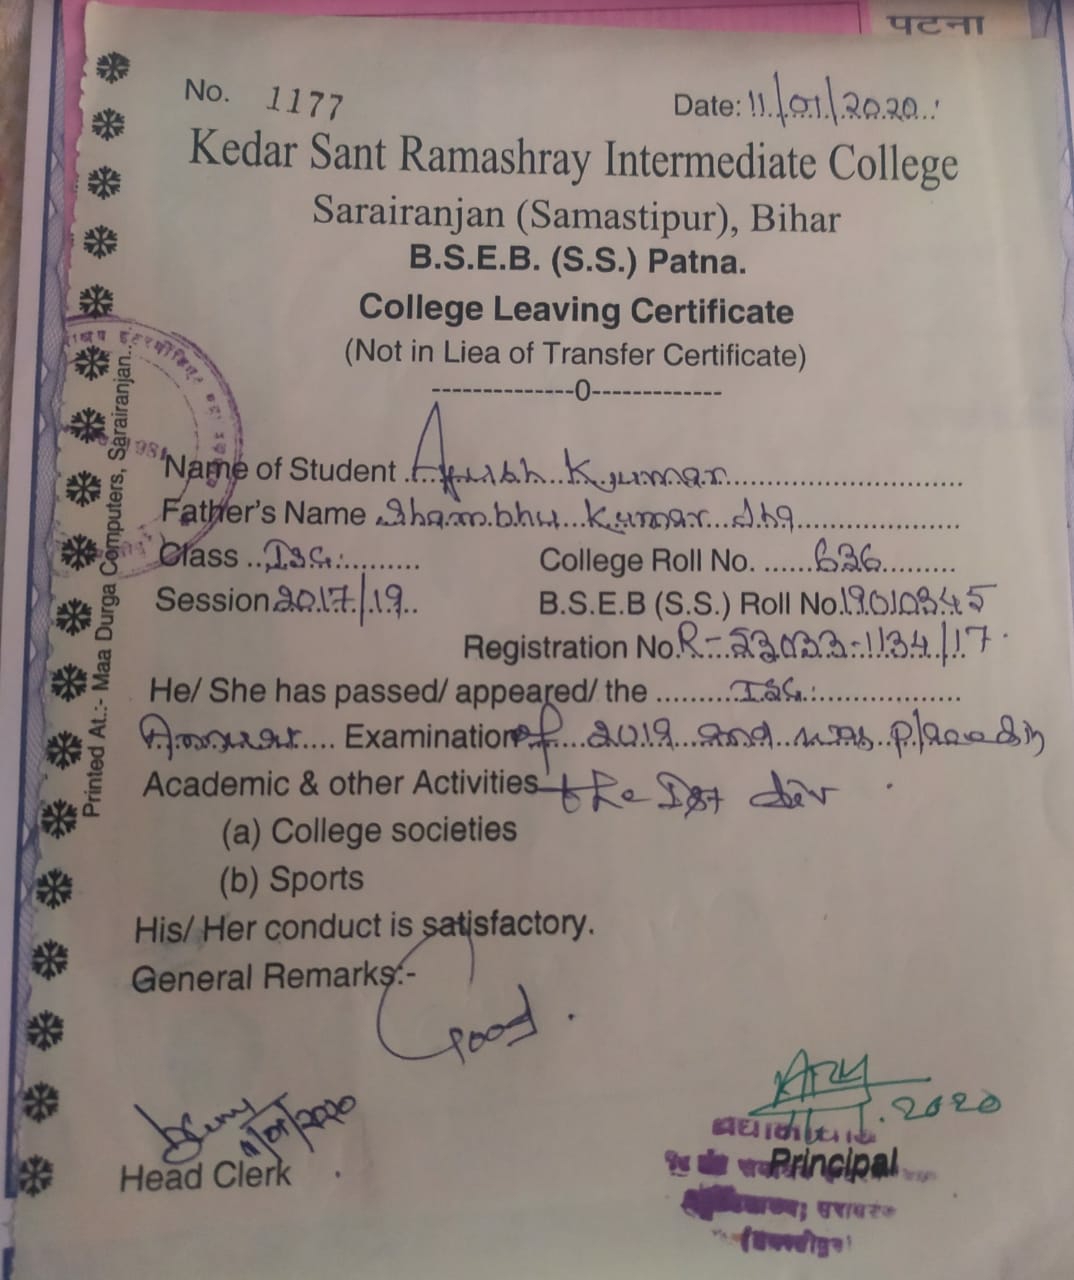 पटना
No. 1177
Date: 11/01/2020
Kedar Sant Ramashray Intermediate College
Sarairanjan (Samastipur), Bihar
B.S.E.B. (S.S.) Patna.
College Leaving Certificate
(Not in Liea of Transfer Certificate)
-------------0-------------
Name of Student Ayush Kumar
Father's Name Shambhu Kumar Jha
Class I.Sc.
College Roll No. 636
Session 2017/19
B.S.E.B (S.S.) Roll No. 19010345
Registration No. R-23033-1134/17
He/ She has passed/ appeared/ the I.Sc.
Annual Examination of 2019 and was placed in
Academic & other Activities the Ist div
(a) College societies
(b) Sports
His/ Her conduct is satisfactory.
General Remarks:-
Good.
11/01/2020
Head Clerk
2020
Principal
Printed At.:- Maa Durga Computers, Sarairanjan.